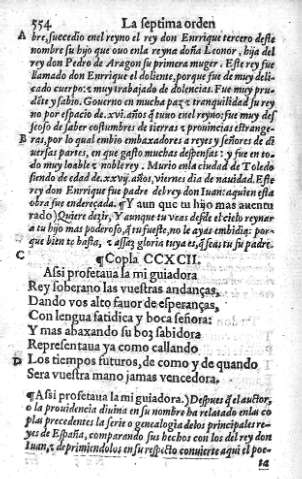 554 La septima orden
A bre, succedio enel reyno el rey don Enrrique tercero deste
nombre su hijo que ouo enla reyna doña Leonor, hija del
rey don Pedro de Aragon su primera muger. Este rey fue
llamado don Enrrique el doliente, porque fue de muy deli-
cado cuerpo: & muy trabajado de dolencias. Fue muy pru-
dēte y sabio. Gouerno en mucha paz & tranquilidad su rey
no por espacio de .xvi. años q̃ tuuo enel reyno: fue muy des
seoso de saber costumbres de tierras & prouincias estrange-
B ras, por lo qual embio embaxadores a reyes y señores de di
uersas partes, en que gasto muchas despensas: y fue en to-
do muy loable & noble rey. Murio enla ciudad de Toledo
siendo de edad de .xxvij. años, viernes dia de nauidad. Este
rey don Enrrique fue padre del rey don Iuan: aquien esta
obra fue endereçada. ¶ Y aun que tu hijo mas auentu
rado) Quiere dezir, Y aunque tu veas desde el cielo reynar
a tu hijo mas poderoso, q̃ tu fueste, no le ayas embidia: por-
que bien te basta, & assaz gloria tuya es, q̃ seas tu su padre.
C ¶ Copla CCXCII.
Assi profetaua la mi guiadora
Rey soberano las vuestras andanças,
Dando vos alto fauor de esperanças,
Con lengua fatidica y boca señora:
Y mas abaxando su boz sabidora
Representaua ya como callando
D Los tiempos futuros, de como y de quando
Sera vuestra mano jamas vencedora.
¶ Assi profetaua la mi guiadora.) Despues q̃ el auctor,
o la prouidencia diuina en su nombre ha relatado enlas co
plas precedentes la serie o genealogia delos principales re-
yes de España, comparando sus hechos con los del rey don
Iuan, & deprimiendolos en su respecto conuierte aqui el poe-
ta